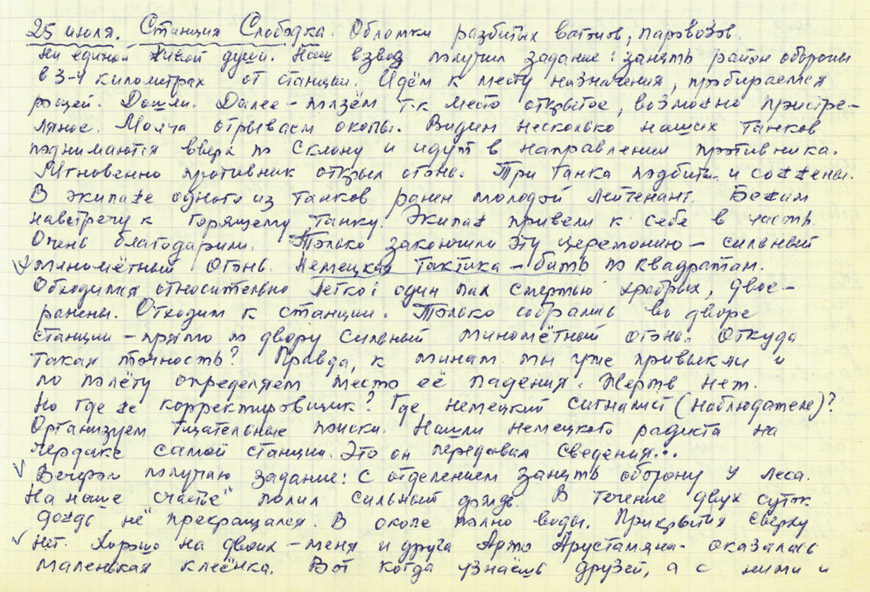 25 июля. Станция Слободка. Обломки разбитых вагонов, паровозов.
Ни единой живой души. Наш взвод получил задание: занять район обороны
в 3-4 километрах от станции. Идём к месту назначения, пробираемся
рощей. Дошли. Далее – ползём т.к место открытое, возможно пристре-
ляное. Молча отрываем окопы. Видим несколько наших танков
поднимаются вверх по склону и идут в направлении противника.
Мгновенно противник открыл огонь. Три танка подбиты и сожжены.
В экипаже одного из танков ранен молодой лейтенант. Бежим
навстречу к горящему танку. Экипаж привели к себе в часть.
Очень благодарили. Только закончили эту церемонию – сильный
миномётный огонь. Немецкая тактика – бить по квадратам.
Обходимся относительно легко: один пал смертью храбрых, двое –
ранены. Отходим к станции. Только собрались во дворе
станции – прямо по двору сильный миномётной огонь. Откуда
такая точность? Правда, к минам мы уже привыкли и
по полёту определяем место её падения. Жертв нет.
Но где же корректировщик? Где немецкий сигналист (наблюдатель)?
Организуем тщательные поиски. Нашли немецкого радиста на
чердаке самой станции. Это он передавал сведения...
Вечером получаю задание: с отделением занять оборону у леса.
На наше "счастье" полил сильный дождь. В течение двух суток
дождь не прекращался. В окопе полно воды. Прикрытия сверху
нет. Хорошо на двоих – меня и друга Арто Арустамяна – оказалась
маленькая клеёнка. Вот когда узнаёшь друзей, а с ними и